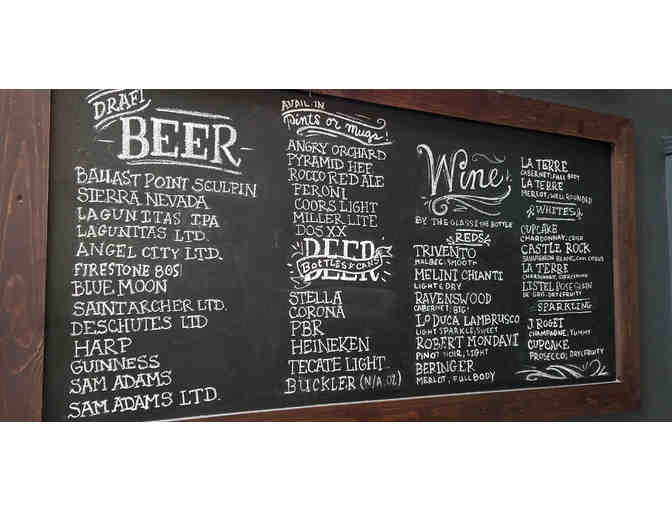 DRAFT
BEER
BALLAST POINT SCULPIN
SIERRA NEVADA
LAGUNITAS IPA
LAGUNITAS LTD.
ANGEL CITY LTD.
FIRESTONE 805
BLUE MOON
SAINT ARCHER LTD.
DESCHUTES LTD
HARP
GUINNESS
SAM ADAMS
SAM ADAMS LTD.
AVAIL. IN
Pints or mugs!
ANGRY ORCHARD
PYRAMID HEF
ROCCO RED ALE
PERONI
COORS LIGHT
MILLER LITE
DOS XX
BEER
BOTTLES & CANS
STELLA
CORONA
PBR
HEINEKEN
TECATE LIGHT
BUCKLER (N/A. 02)
Wine
BY THE GLASS & THE BOTTLE
REDS
TRIVENTO
MALBEC, SMOOTH
MELINI CHIANTI
LIGHT & DRY
RAVENSWOOD
CABERNET, BIG!
LO DUCA LAMBRUSCO
LIGHT SPARKLE, SWEET
ROBERT MONDAVI
PINOT NOIR, LIGHT
BERINGER
MERLOT, FULL BODY
LA TERRE
CABERNET, FULL BODY
LA TERRE
MERLOT, WELL ROUNDED
WHITES
CUPCAKE
CHARDONNAY, CRISP
CASTLE ROCK
SAUVIGNON BLANC, CITRUS
LA TERRE
CHARDONNAY,
LISTEL
DRY, FRUITY
SPARKLING
J. ROGET
CHAMPAGNE, YUMMY
CUPCAKE
PROSECCO, DRY & FRUITY